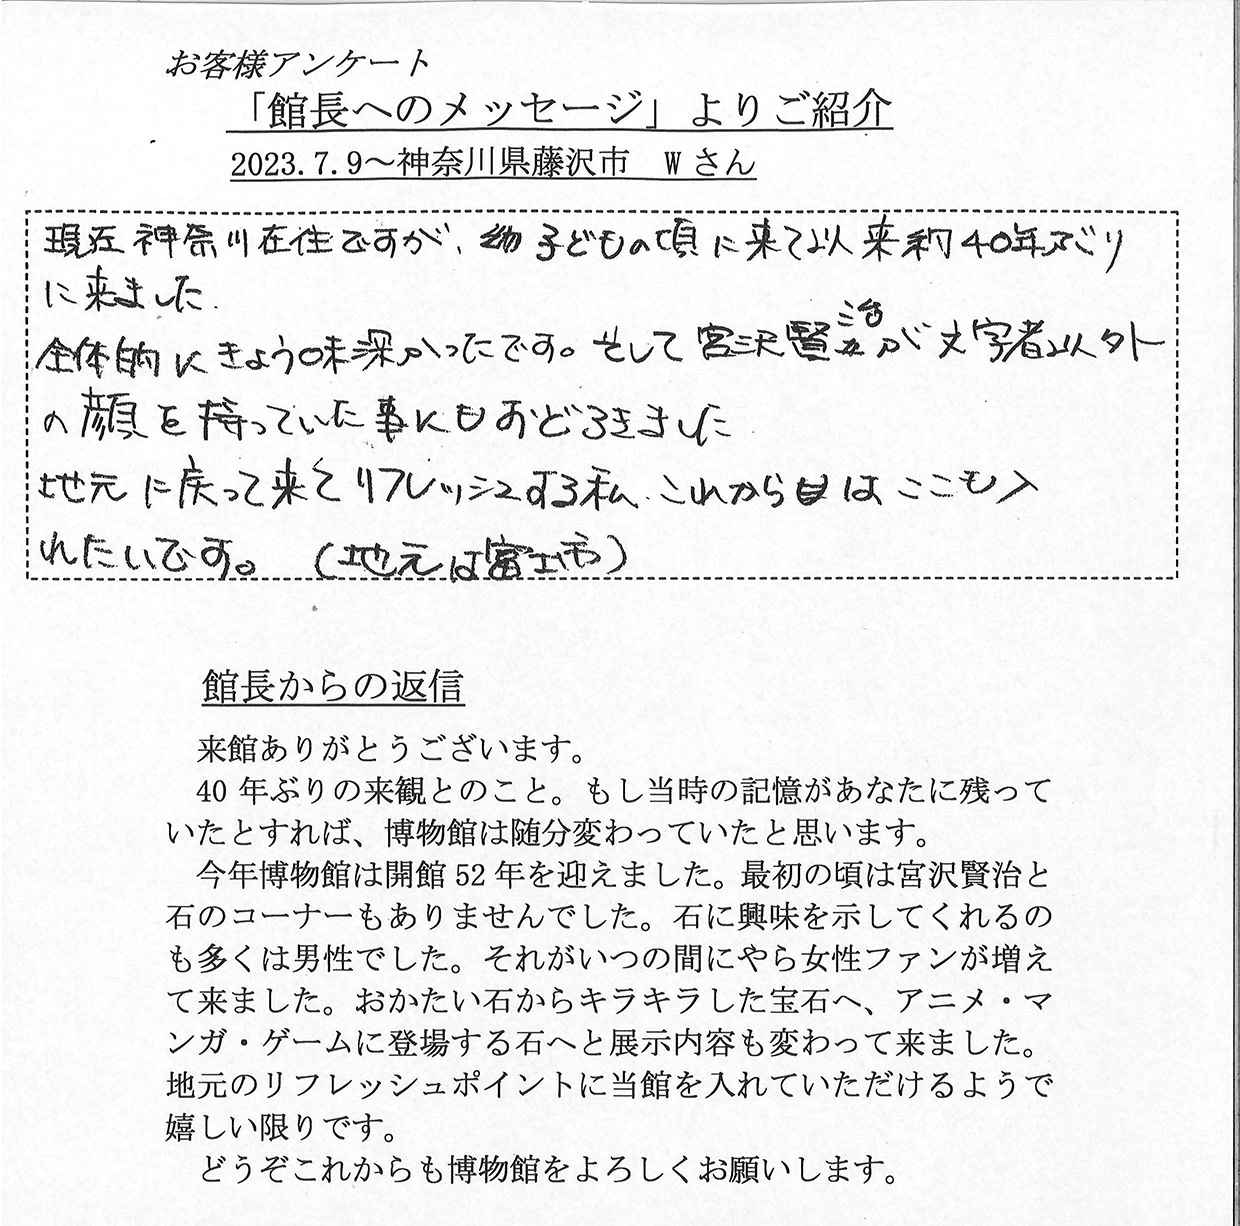 お客様アンケート
「館長へのメッセージ」よりご紹介
2023.7.9～神奈川県藤沢市　Wさん
現在神奈川在住ですが、子どもの頃に来て以来約40年ぶり
に来ました
全体的にきょう味深かったです。そして宮沢賢治が文学者以外
の顔を持っていた事にもおどろきました
地元に戻って来てリフレッシュする私、これからはここも入
れたいです。（地元は富士市）
館長からの返信
来館ありがとうございます。
40年ぶりの来観とのこと。もし当時の記憶があなたに残って
いたとすれば、博物館は随分変わっていたと思います。
今年博物館は開館52年を迎えました。最初の頃は宮沢賢治と
石のコーナーもありませんでした。石に興味を示してくれるの
も多くは男性でした。それがいつの間にやら女性ファンが増え
て来ました。おかたい石からキラキラした宝石へ、アニメ・マ
ンガ・ゲームに登場する石へと展示内容も変わって来ました。
地元のリフレッシュポイントに当館を入れていただけるようで
嬉しい限りです。
どうぞこれからも博物館をよろしくお願いします。